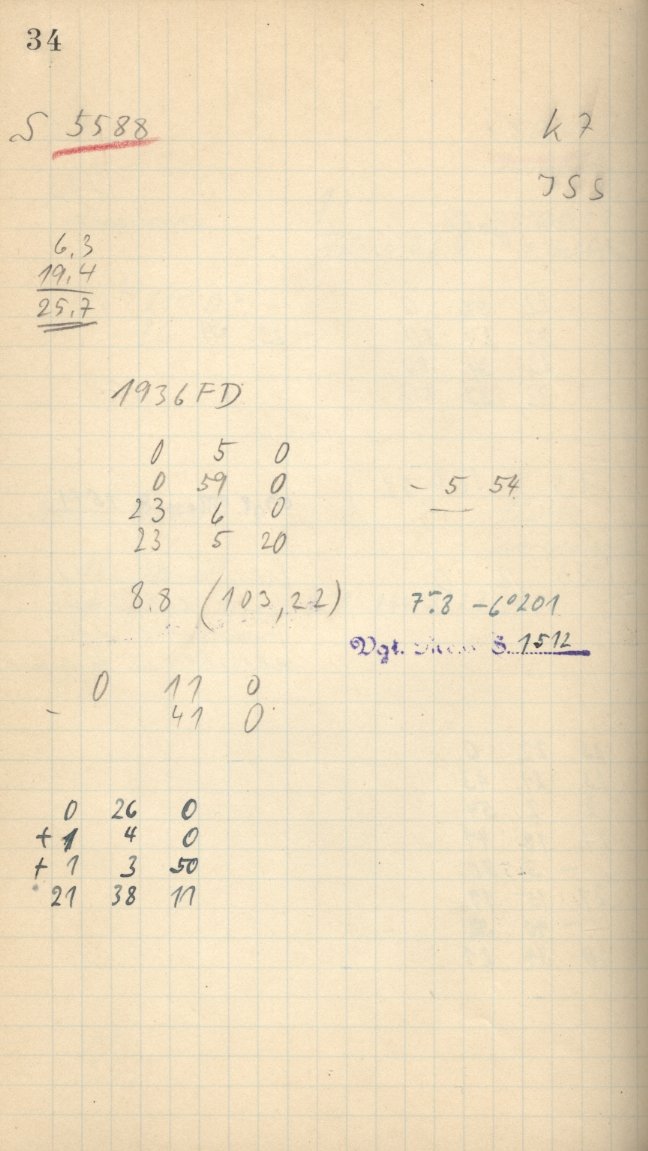 34
S 5588
K 7
JSS
6,3
19,4
25,7
1936 FD
0 5 0
0 59 0 - 5 54
23 6 0
23 5 20
8.8 (103,22) 7.8 -6°201
Vgl. S. 1512
0 11 0
- 41 0
0 26 0
+ 1 4 0
+ 1 3 50
21 38 11